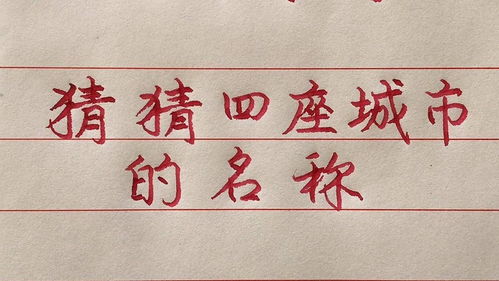 猜猜四座城市
的名称